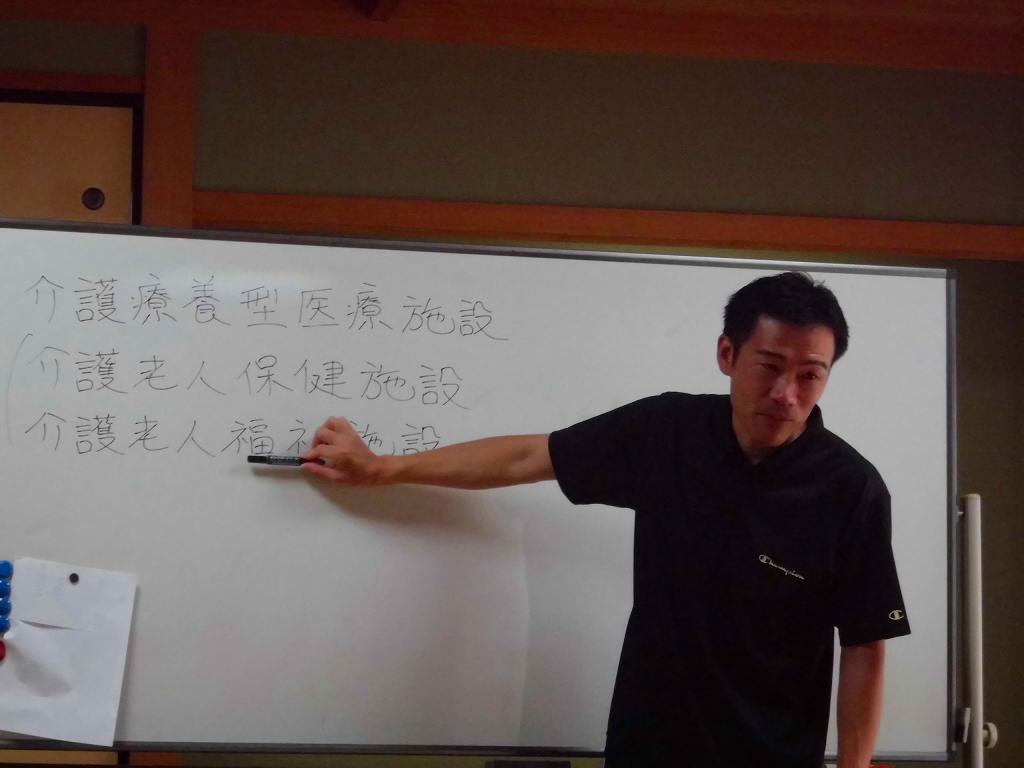 介護療養型医療施設
介護老人保健施設
介護老人福祉施設
Champion